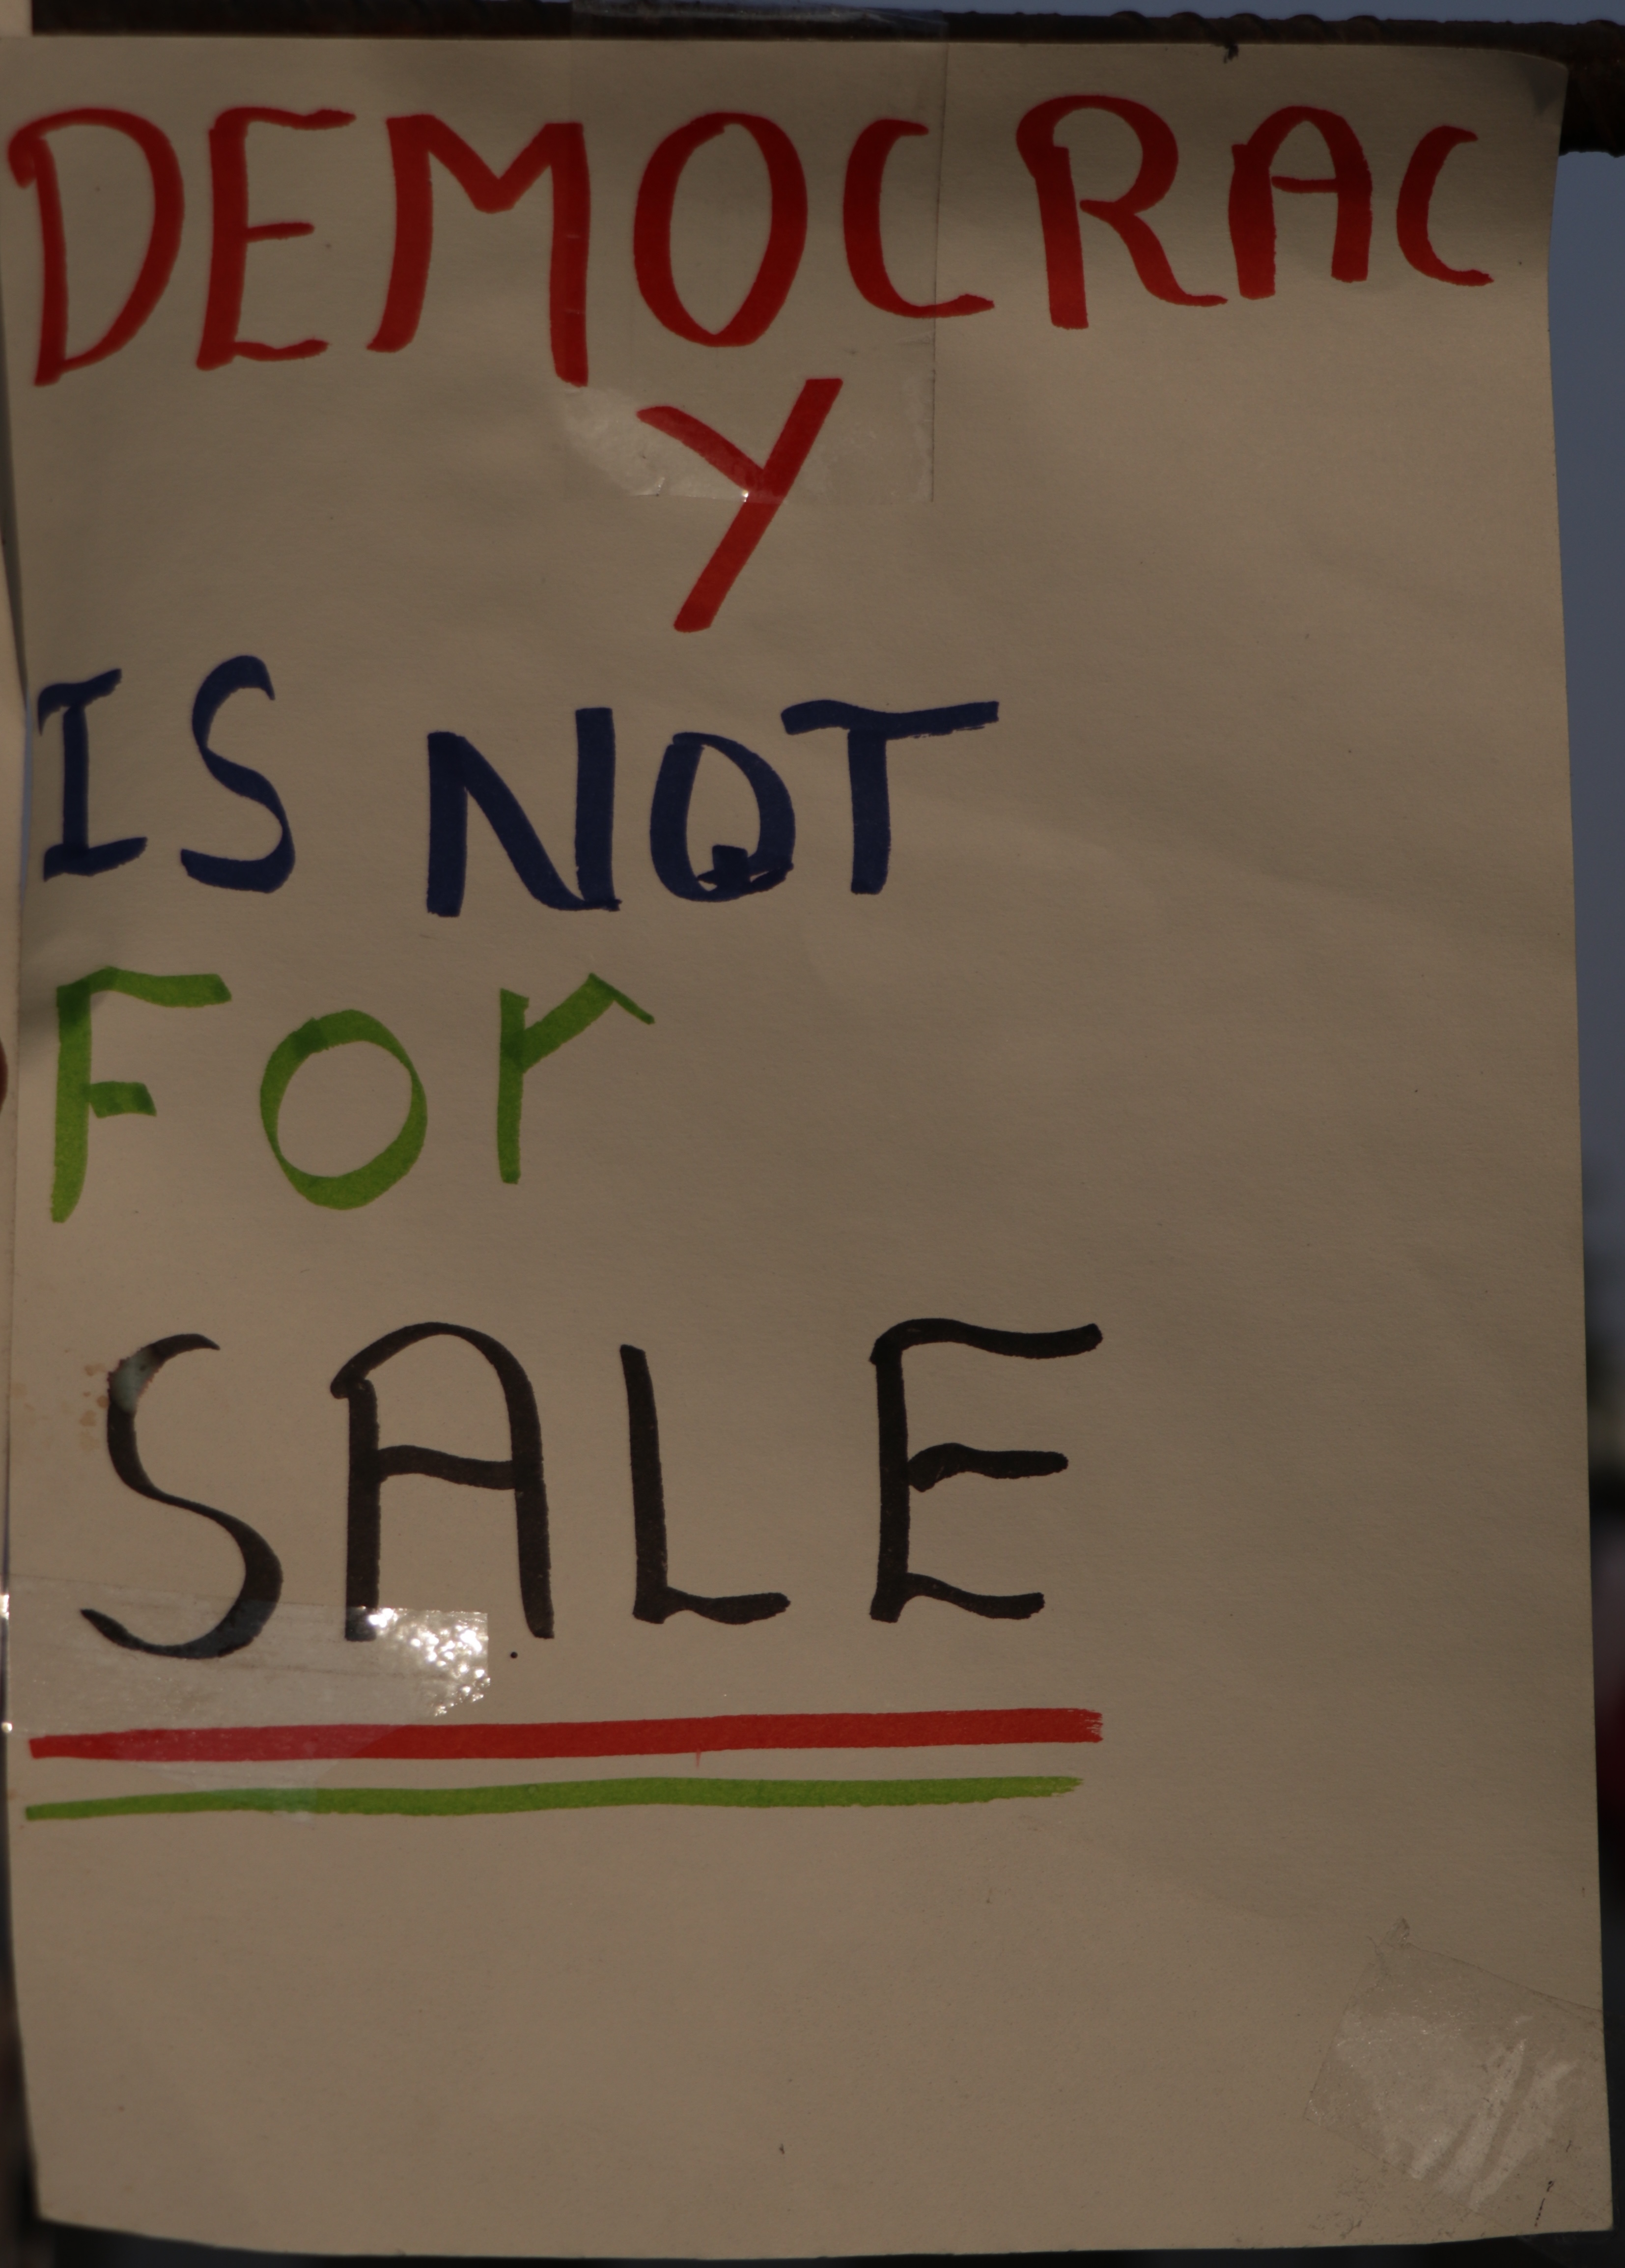 DEMOCRAC
Y
IS NOT
FOr
SALE